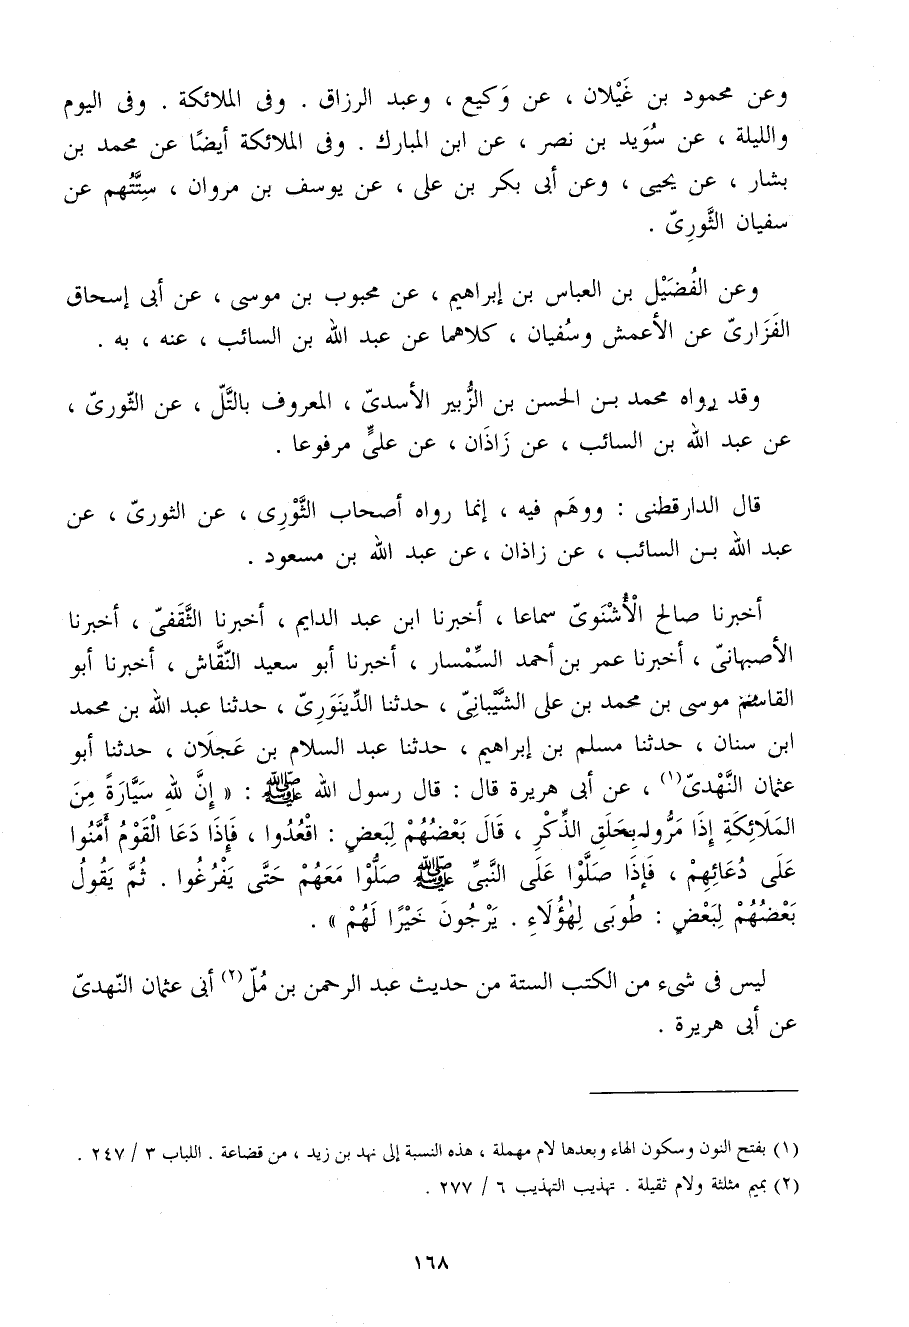 وعن محمود بن غَيْلان ، عن وَكيع ، وعبد الرزاق . وفى الملائكة . وفى اليوم
والليلة ، عن سُوَيد بن نصر ، عن ابن المبارك . وفى الملائكة أيضًا عن محمد بن
بشار ، عن يحيى ، وعن أبى بكر بن على ، عن يوسف بن مروان ، سِتَّتُهم عن
سفيان الثَّورِىّ .
وعن الفُضَيْل بن العباس بن إبراهيم ، عن محبوب بن موسى ، عن أبى إسحاق
الفَزَارىّ عن الأعمش وسُفيان ، كلاهما عن عبد الله بن السائب ، عنه ، به .
وقد رواه محمد بـن الحسن بن الزُّبير الأسدىّ ، المعروف بالتَّلّ ، عن الثّورىّ ،
عن عبد الله بن السائب ، عن زَاذَان ، عن علىٍّ مرفوعا .
قال الدارقطنى : ووهَم فيه ، إنما رواه أصحاب الثَّوْرِى ، عن الثورىّ ، عن
عبد الله بـن السائب ، عن زاذان ، عن عبد الله بن مسعود .
أخبرنا صالح الْأُشْنَوىّ سماعا ، أخبرنا ابن عبد الدايم ، أخبرنا الثَّقَفىّ ، أخبرنا
الأصبهانىّ ، أخبرنا عمر بن أحمد السِّمْسار ، أخبرنا أبو سعيد النّقَّاش ، أخبرنا أبو
القاسم موسى بن محمد بن على الشَّيْبانِىّ ، حدثنا الدِّينَوَرِىّ ، حدثنا عبد الله بن محمد
ابن سنان ، حدثنا مسلم بن إبراهيم ، حدثنا عبد السلام بن عَجلَان ، حدثنا أبو
عثمان النَّهْدىّ(١) ، عن أبى هريرة قال : قال رسول الله ﷺ : « إِنَّ للهِ سَيَّارَةً مِنَ
المَلَائِكَةِ إِذَا مَرُّوا بِحَلَقِ الذِّكْرِ ، قَالَ بَعْضُهُمْ لِبَعضٍ : اقْعُدُوا ، فَإِذَا دَعَا الْقَوْمُ أَمَّنُوا
عَلَى دُعَائِهِمْ ، فَإِذَا صَلَّوْا عَلَى النَّبِىِّ ﷺ صَلُّوْا مَعَهُمْ حَتَّى يَفْرُغُوا . ثُمَّ يَقُولُ
بَعْضُهُمْ لِبَعْضٍ : طُوبَى لِهٰؤُلَاءِ . يَرْجُونَ خَيْرًا لَهُمْ » .
ليس فى شىء من الكتب الستة من حديث عبد الرحمن بن مُلّ(٢) أبى عثمان النّهدىّ
عن أبى هريرة .
(١) بفتح النون وسكون الهاء وبعدها لام مهملة ، هذه النسبة إلى نهد بن زيد ، من قضاعة . اللباب ٣ / ٢٤٧ .
(٢) بميم مثلثة ولام ثقيلة . تهذيب التهذيب ٦ / ٢٧٧ .
١٦٨